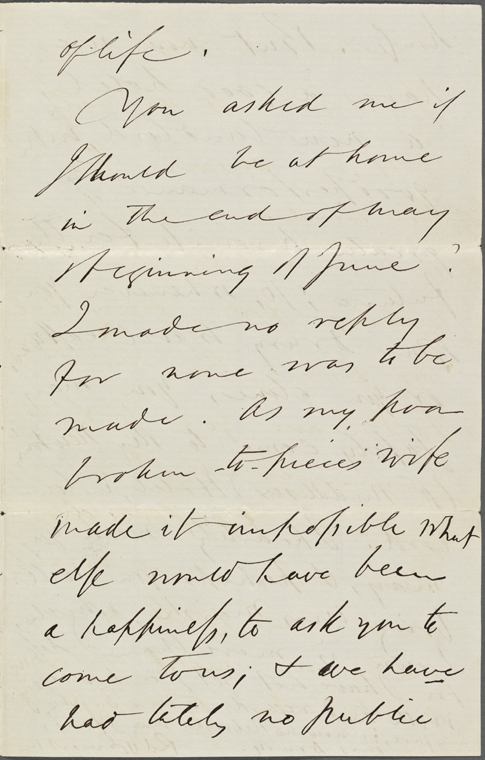 of life.
You asked me if
I should be at home
in the end of may
beginning of June?
I made no reply
for none was to be
made. As my poor
broken-to-pieces wife
made it impossible what
else would have been
a happiness, to ask you to
come to us; & we have
had lately no public